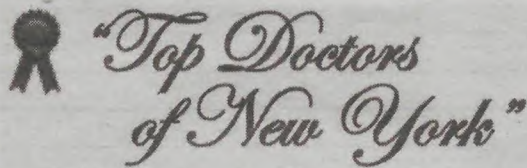 "Top Doctors
of New York"